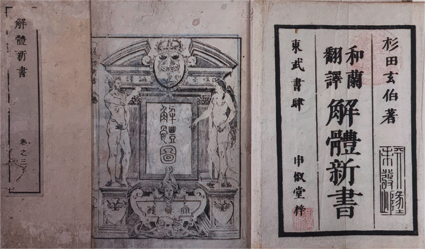 解體新書
卷之三
解體圖
杉田玄伯著
和蘭
翻譯
解體新書
東武書肆
申椒堂